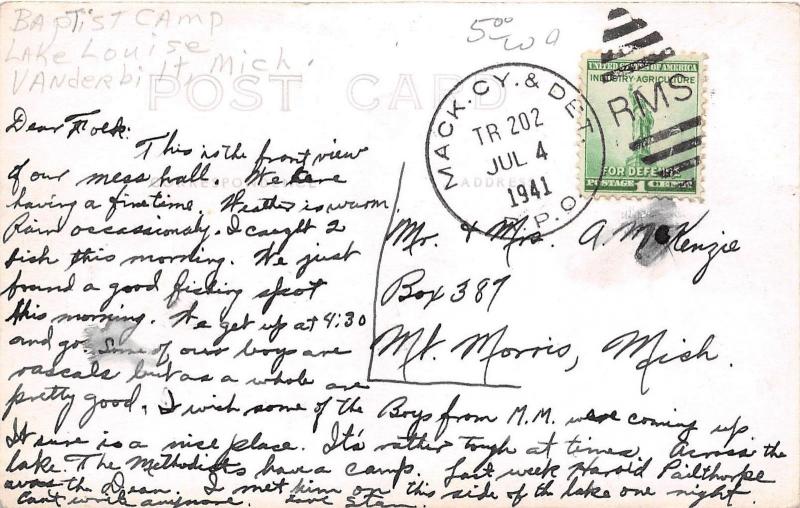 BAPTIST CAMP
LAKE LOUISE
VANderbilt Mich.
5.00
POST CARD
CORRESPONDENCE
ADDRESS
MACK. CY. & DET.
TR 202
JUL 4
1941
R.P.O.
RMS
UNITED STATES OF AMERICA
INDUSTRY·AGRICULTURE
FOR DEFENSE
POSTAGE 1 CENT
Dear Folk:
This is the front view
of our mess hall. We are
having a fine time. Weather is warm.
Rain occassionaly. I caught 2
fish this morning. We just
found a good fishing spot
this morning. We get up at 4:30
and go. Some of our boys are
rascals but as a whole are
pretty good. I wish some of the Boys from M.M. were coming up
It sure is a nice place. It's rather tough at times. Across the
lake. The Methodists have a camp. Last week Harold Pailthorpe
was the Dean. I met him on this side of the lake one night.
Cant write anymore.
Mr. & Mrs. A McKenzie
Box 387
Mt. Morris, Mich.